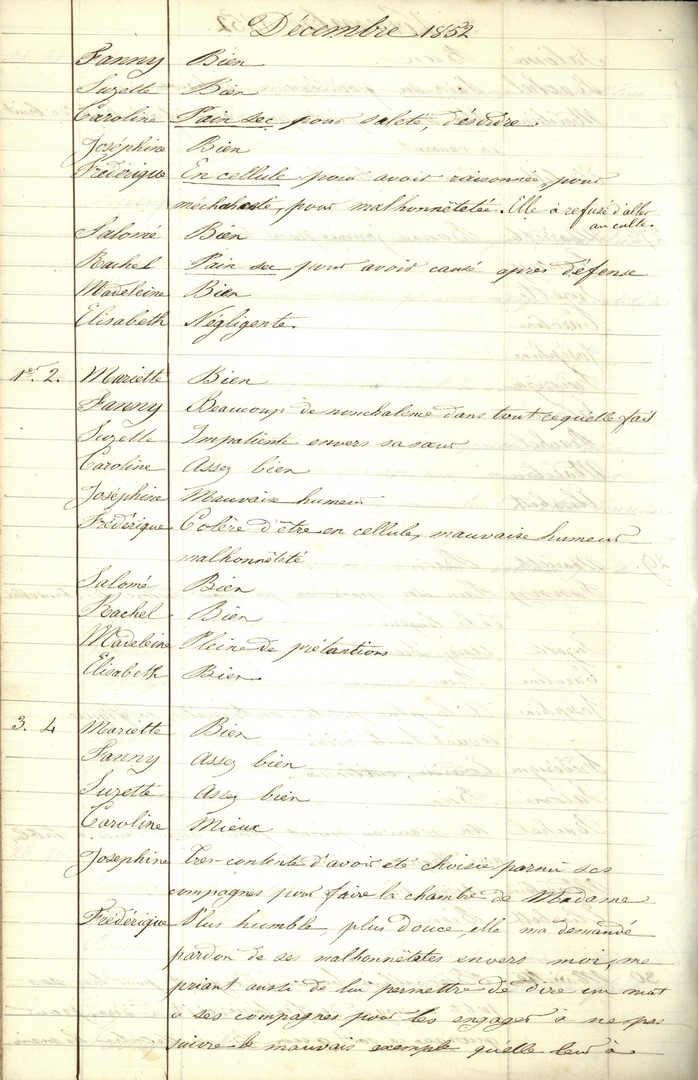 Décembre 1852
Fanny Bien
Suzette Bien
Caroline Pain sec pour saleté, désordre.
Joséphine Bien
Frédérique En cellule pour avoir raisonnée, pour
méchanceté, pour malhonnêtetée. Elle à refusé d'aller
au culte.
Salomé Bien
Rachel Pain sec pour avoir causé après défense
Madeleine Bien
Elisabeth Négligente.
1er. 2. Mariette Bien
Fanny Beaucoup de nonchalence dans tout ce qu'elle fait
Suzette Impatiente envers sa sœur
Caroline Assez bien
Joséphine Mauvaise humeur
Frédérique Colère d'être en cellule, mauvaise humeur
malhonnêteté
Salomé Bien
Rachel Bien
Madeleine Pleine de prétantions
Elisabeth Bien.
3. 4 Mariette Bien
Fanny Assez bien
Suzette Assez bien
Caroline Mieux
Joséphine Très-contente d'avoir été choisie parmi ses
compagnes pour faire la chambre de Madame
Frédérique Plus humble, plus douce, elle ma demandé
pardon de ses malhonnêtetes envers moi, me
priant aussi de lui permettre de dire un mot
à ses compagnes pour les engager à ne pas
suivre le mauvais exemple qu'elle leur à